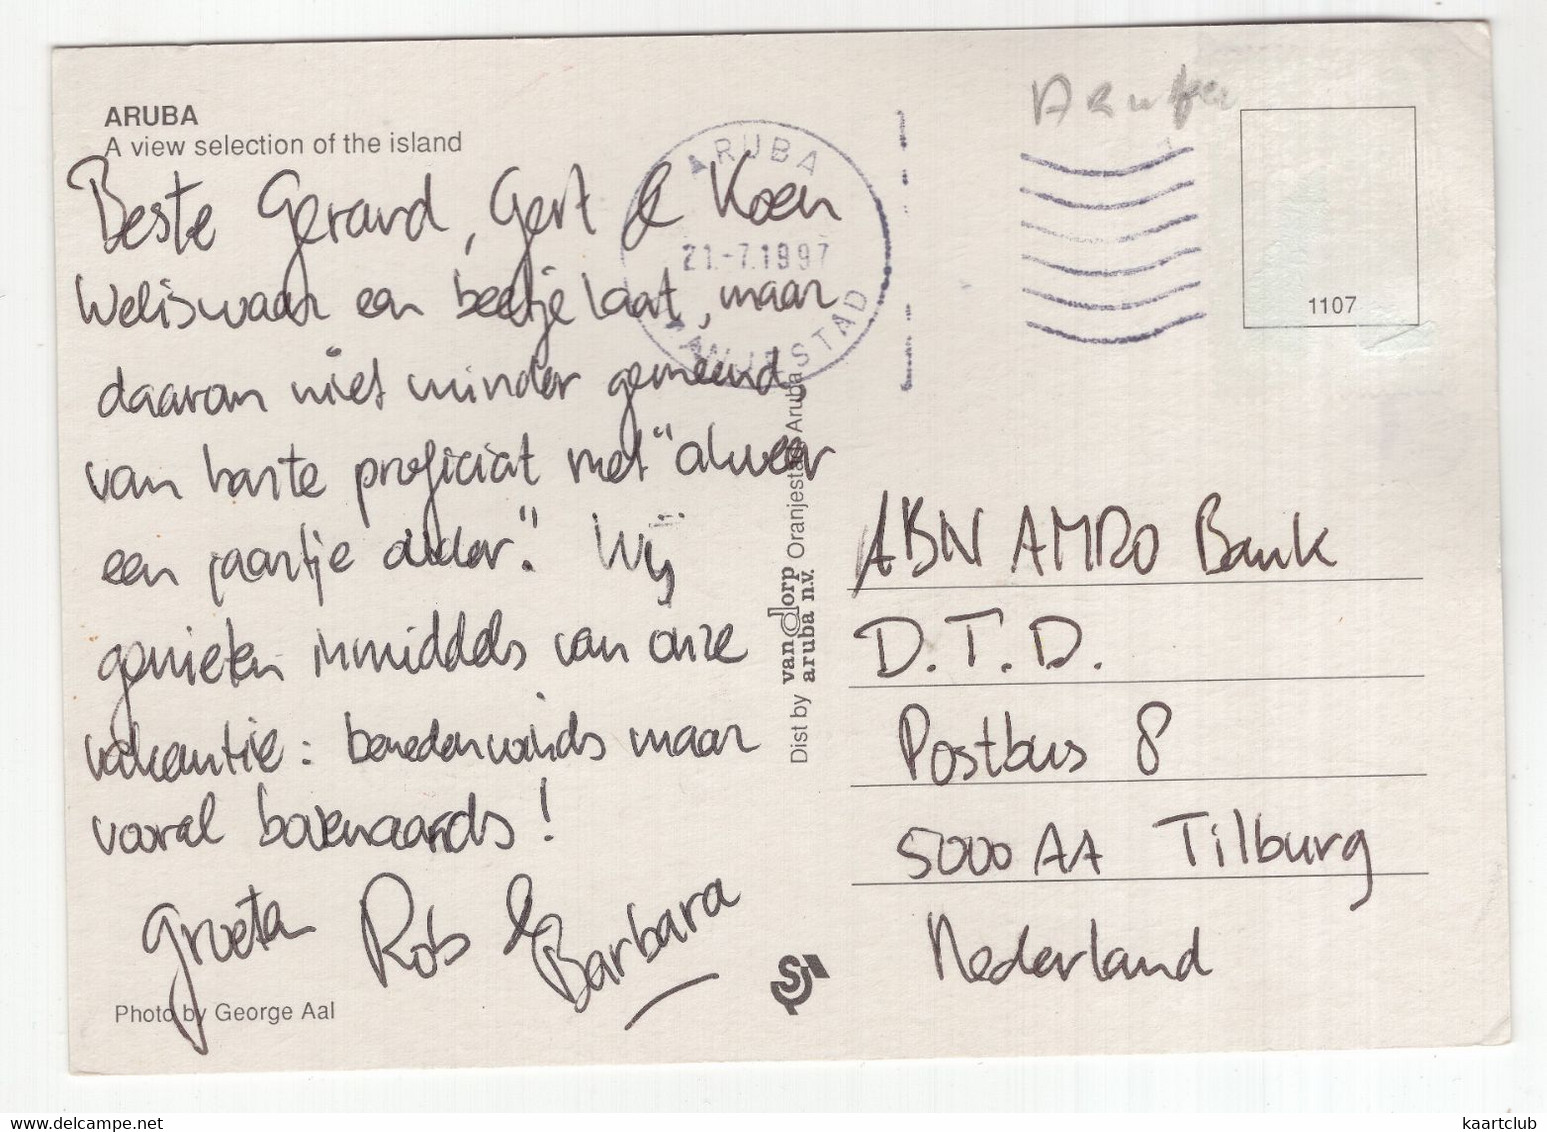 ARUBA
A view selection of the island
Beste Gerard, Gert & Koen
Weliswaar een beetje laat, maar
daarom niet minder gemeend,
van harte proficiat met "alweer
een jaartje ouder". Wij
genieten inmiddels van onze
vakantie: benedenwinds maar
vooral bovenaards!
Groeten Rob & Barbara
Photo by George Aal
ARUBA
21.-7.1997
ORANJESTAD
Dist by van dorp aruba n.v. Oranjestad Aruba
1107
ABN AMRO Bank
D.T.D.
Postbus 8
5000 AA Tilburg
Nederland
www.delcampe.net
kaartclub